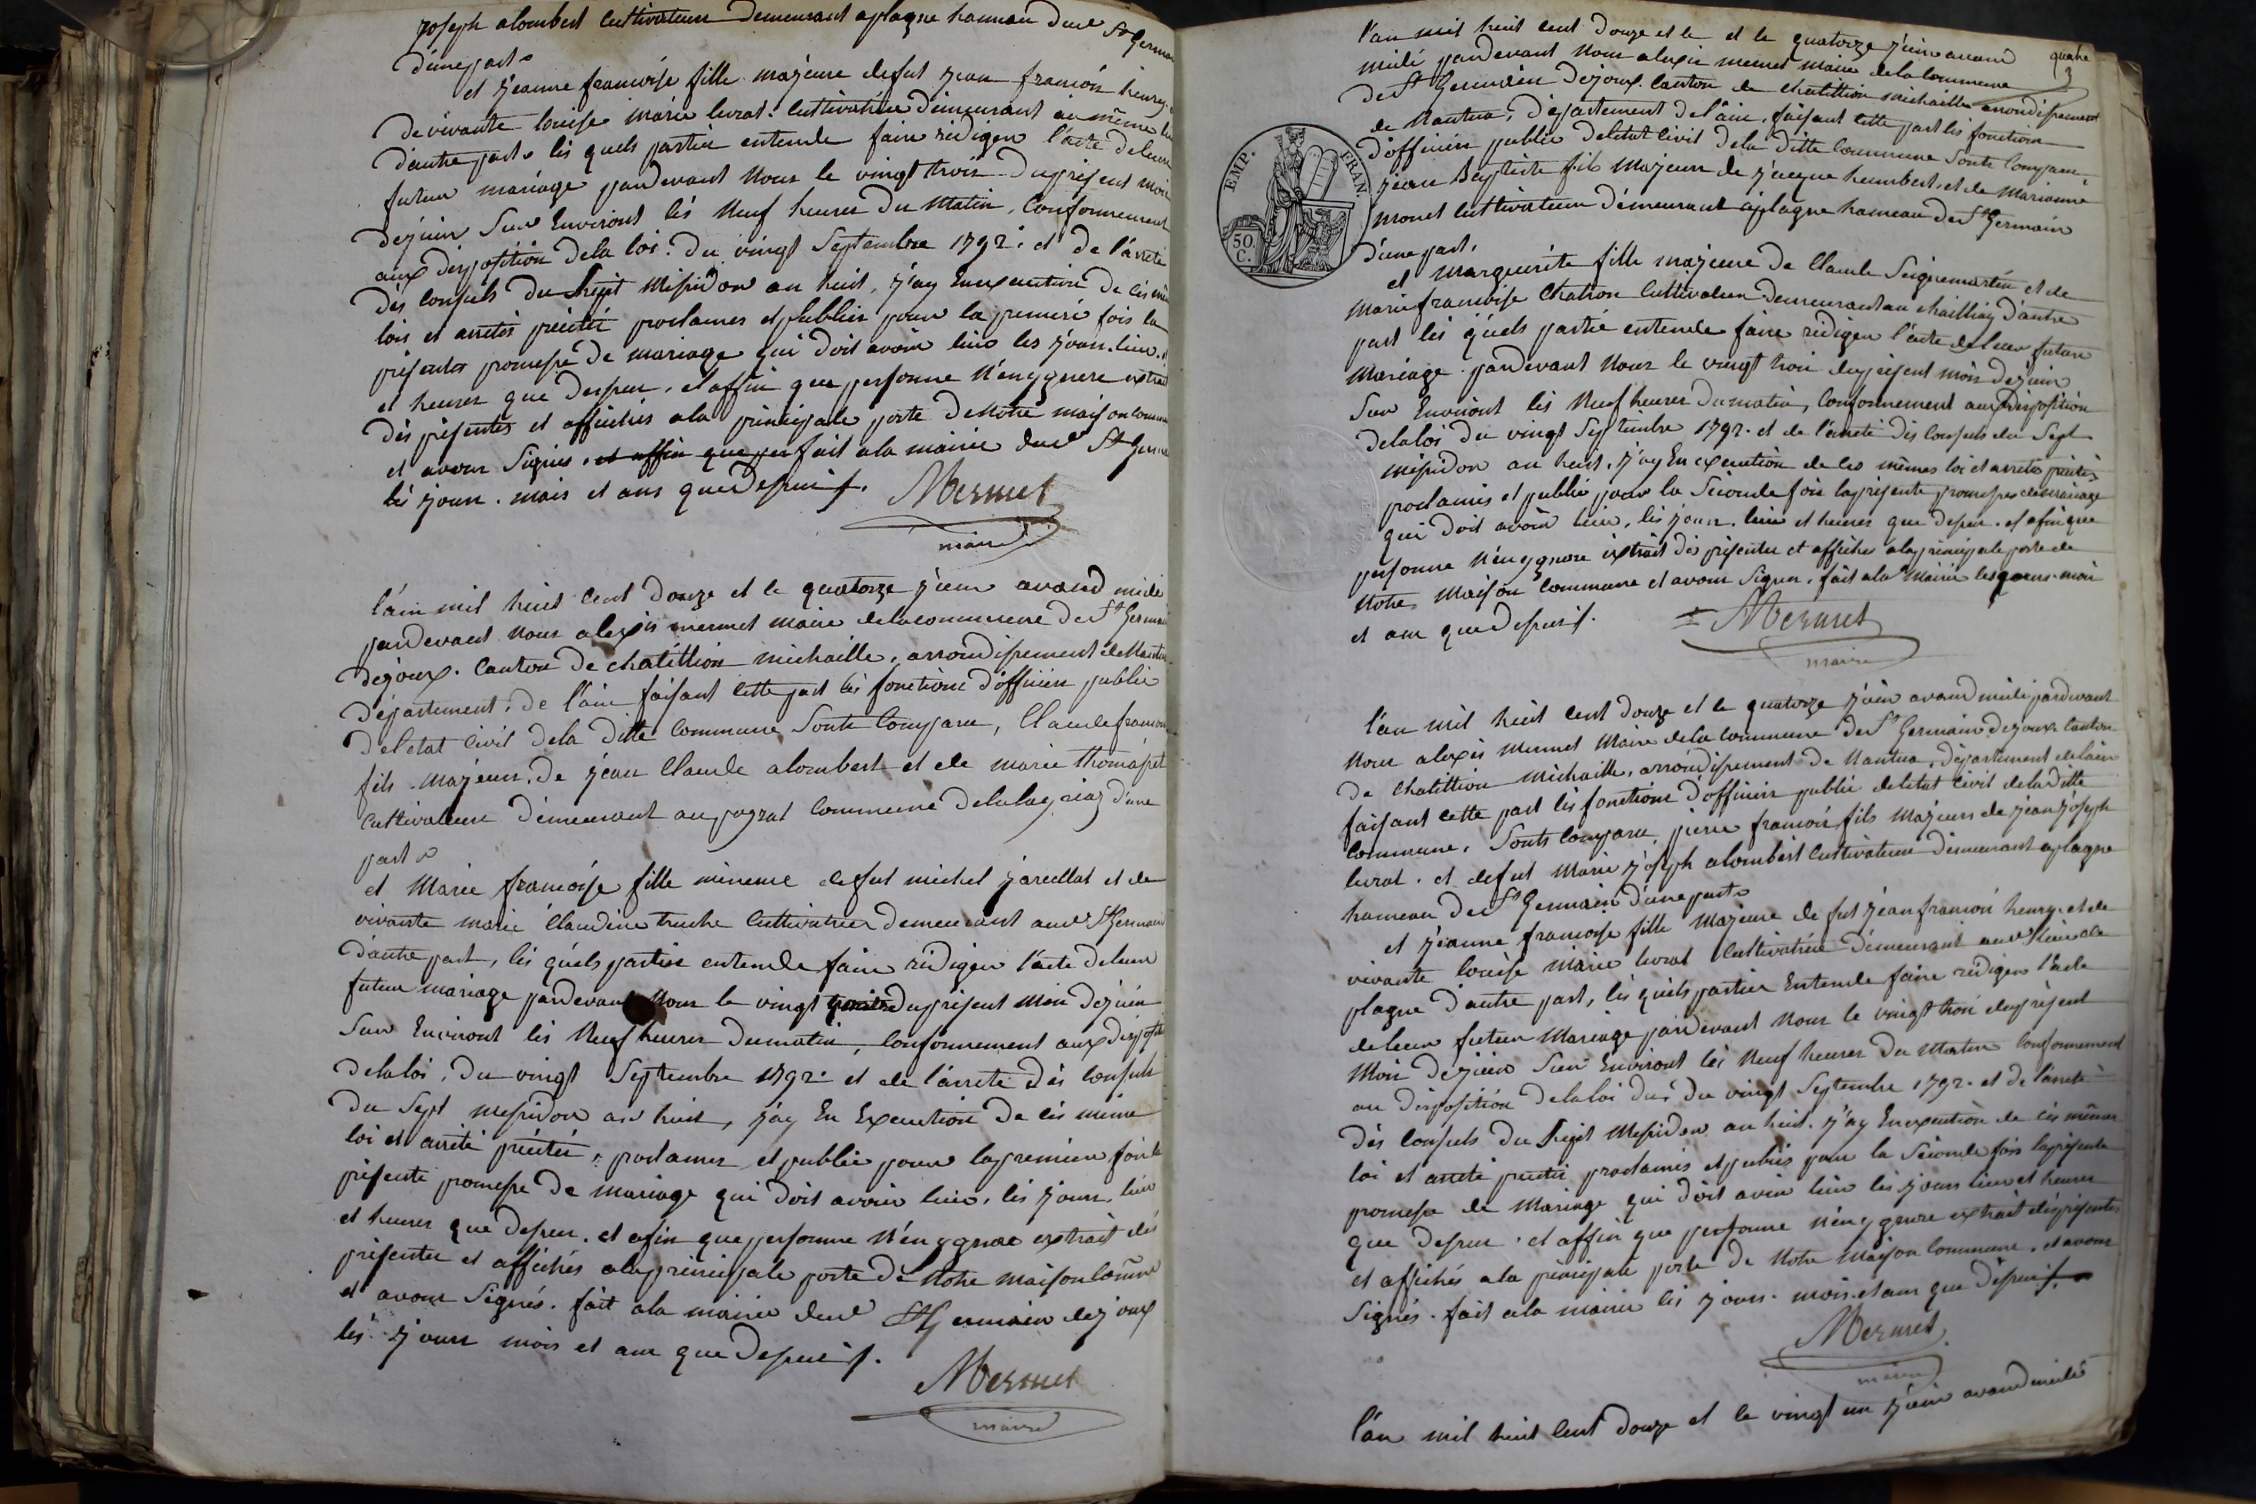 joseph alombert Cultivateur demeurant aplagne hameau dud St Germain
d'une part
et jéanne francoise fille majeure defut jean francois henry
de vivante louise marie livrat. Cultivatrice démeurant au même lieu
d'autre part. lés quels partie entende faire rédiger l'acte deleur
futur mariage pardevant Nous le vingt trois du présent mois
dejuin Sur Environt lés Neuf heures du Matin, Conformement
aux disposition dela loi. du vingt Septembre 1792. et de l'arreté
dés Consuls du Sept Messidor an huit, j'ay En execution de cés même
lois et arretés précité proclamer et publier pour la premiere fois la
présentes promesse de mariage qui doit avoir lieu les jour. lieu.
et heures que dessus. et affin que personne N'en ygnore extrait
dés présentes et affichés ala principale porte deNotre maison commune
et avons Signés. et affin que per fait ala mairie dud St Germain
lés jour. mois et ans que dessus.
Mermet
maire
l'an mil huit Cent douze et le quatorze juin avand midi
pardevant Nous alexis mermet maire delacommune de St Germain
dejoux. Canton de chatillion michaille, arrondissement de Nantua
département de l'ain faisant cette part lés fonctions d'officier public
del'etat Civil dela ditte Commune Sonts Comparu, Claude francois
fils majeur. de jean Claude alombert et de marie thomasset
cultivateur démeurant au pogzat Commune delalayriaz d'une
part
et Marie francoise fille mineure defut michel jarullat et de
vivante marie Claudine truche Cultivatrice demeurant aud St Germain
d'autre part, lés quels partie entende faire rédiger l'acte deleur
futur mariage pardevant Nous le vingt duprésent Mois dejuin
Sur Environt lés Neuf heures dumatin, Conformement aux dispositi
delaloi, du vingt Septembre 1792. et de l'arreté dés Consuls
du Sept messidor an huit, j'ay En Execution de cés même
loi et arrêté précité, proclamer et publié pour lapremiere fois la
présente promesse de mariage qui doit avoir lieu, lés jour. lieu
et heures que dessus. et afin que personne N'en ygnore extrait dés
présentes et affichés alaprincipale porte de Notre maison Comune
et avons Signés. fait ala mairie dud St Germain dejoux
lés jour mois et an que dessus.
Mermet
maire
quatre
l'an mil huit cent douze et le et le quatorze juin avand
midi pardevant Nous alexis mermet maire dela Commune
de St Germain dejoux. Canton de chatillion michaille arrondissement
de Nantua, département de l'ain, faisant cette part lés fonctions
d'officier public del'etat Civil dela ditte Commune Sonts Comparu
jean Baptiste fils majeur de jacque humbert, et de Marianne
monet Cultivateur démeurant aplagne hameau de St Germain
d'une part,
EMP. FRAN.
50 C.
et marguerite fille majeure de Claude Seignemartin et de
marie francoise Chatron Cultivateur demeurant au challiay d'autre
part lés quels partie entende faire rédiger l'acte deleur future
Mariage. pardevant Nous le vingt trois duprésent mois dejuin
Sur Environt lés Neuf heures dumatin, Conformement aux Disposition
delaloi du vingt Septembre 1792. et de l'arreté dés Consuls du Sept
méssidor an huit, j'ay En execution de ces mêmes loi et arretés précités
proclamés et publié pour la Séconde fois laprésente promesses demariage
qui doit avoir lieu, lés jour. lieu et heures que dessus. et afin que
personne N'en ygnore extrait dés présentes et affiches alaprincipale porte de
Notre Maison Commune et avons Signer, fait ala Mairie lesjours. mois
et an que dessus.
Mermet
maire
l'an mil huit cent douze et le quatorze juin avand midi pardevant
Nous alexis mermet Maire dela Commune de St Germain dejoux Canton
de Chatillion Michaille, arrondissement de Nantua, département delain
faisant cette part lés fonctions d'officier public deletat Civil deladitte
Commune, Sonts Comparu, pierre francois fils Majeur de jean joseph
livrat. et defut Marie joseph alombert Cultivateur démeurant aplagne
hameau de St Germain d'une part
et jéanne francoise fille Majeure de fut jéan francois henry. et de
vivante louise Marie livrat Cultivatrice démeurant aud lieu de
plagne d'autre part, lés quels partier Entende faire rédiger l'acte
deleur futur Mariage pardevant Nous le vingt trois duprésent
Mois dejuin Sur Environt lés Neuf heures du Matin Conformement
au disposition delaloi du du vingt Septembre 1792. et de l'arreté
dés Consuls du Sept Messidor an huit. j'ay En execution de cés mêmes
loi et arreté précité proclamés et publiés pour la Séconde fois laprésente
promesse de Mariage qui doit avoir lieu lés jours lieu et heures
que dessus. et affin que personne N'en ygnore extrait désprésentes
et affichés ala principale porte de Notre Maison Commune, et avons
Signés. fait ala mairie lés jours. mois et an que dessus.
Mermet
maire
l'an mil huit Cent douze et le vingt un juin avand midi